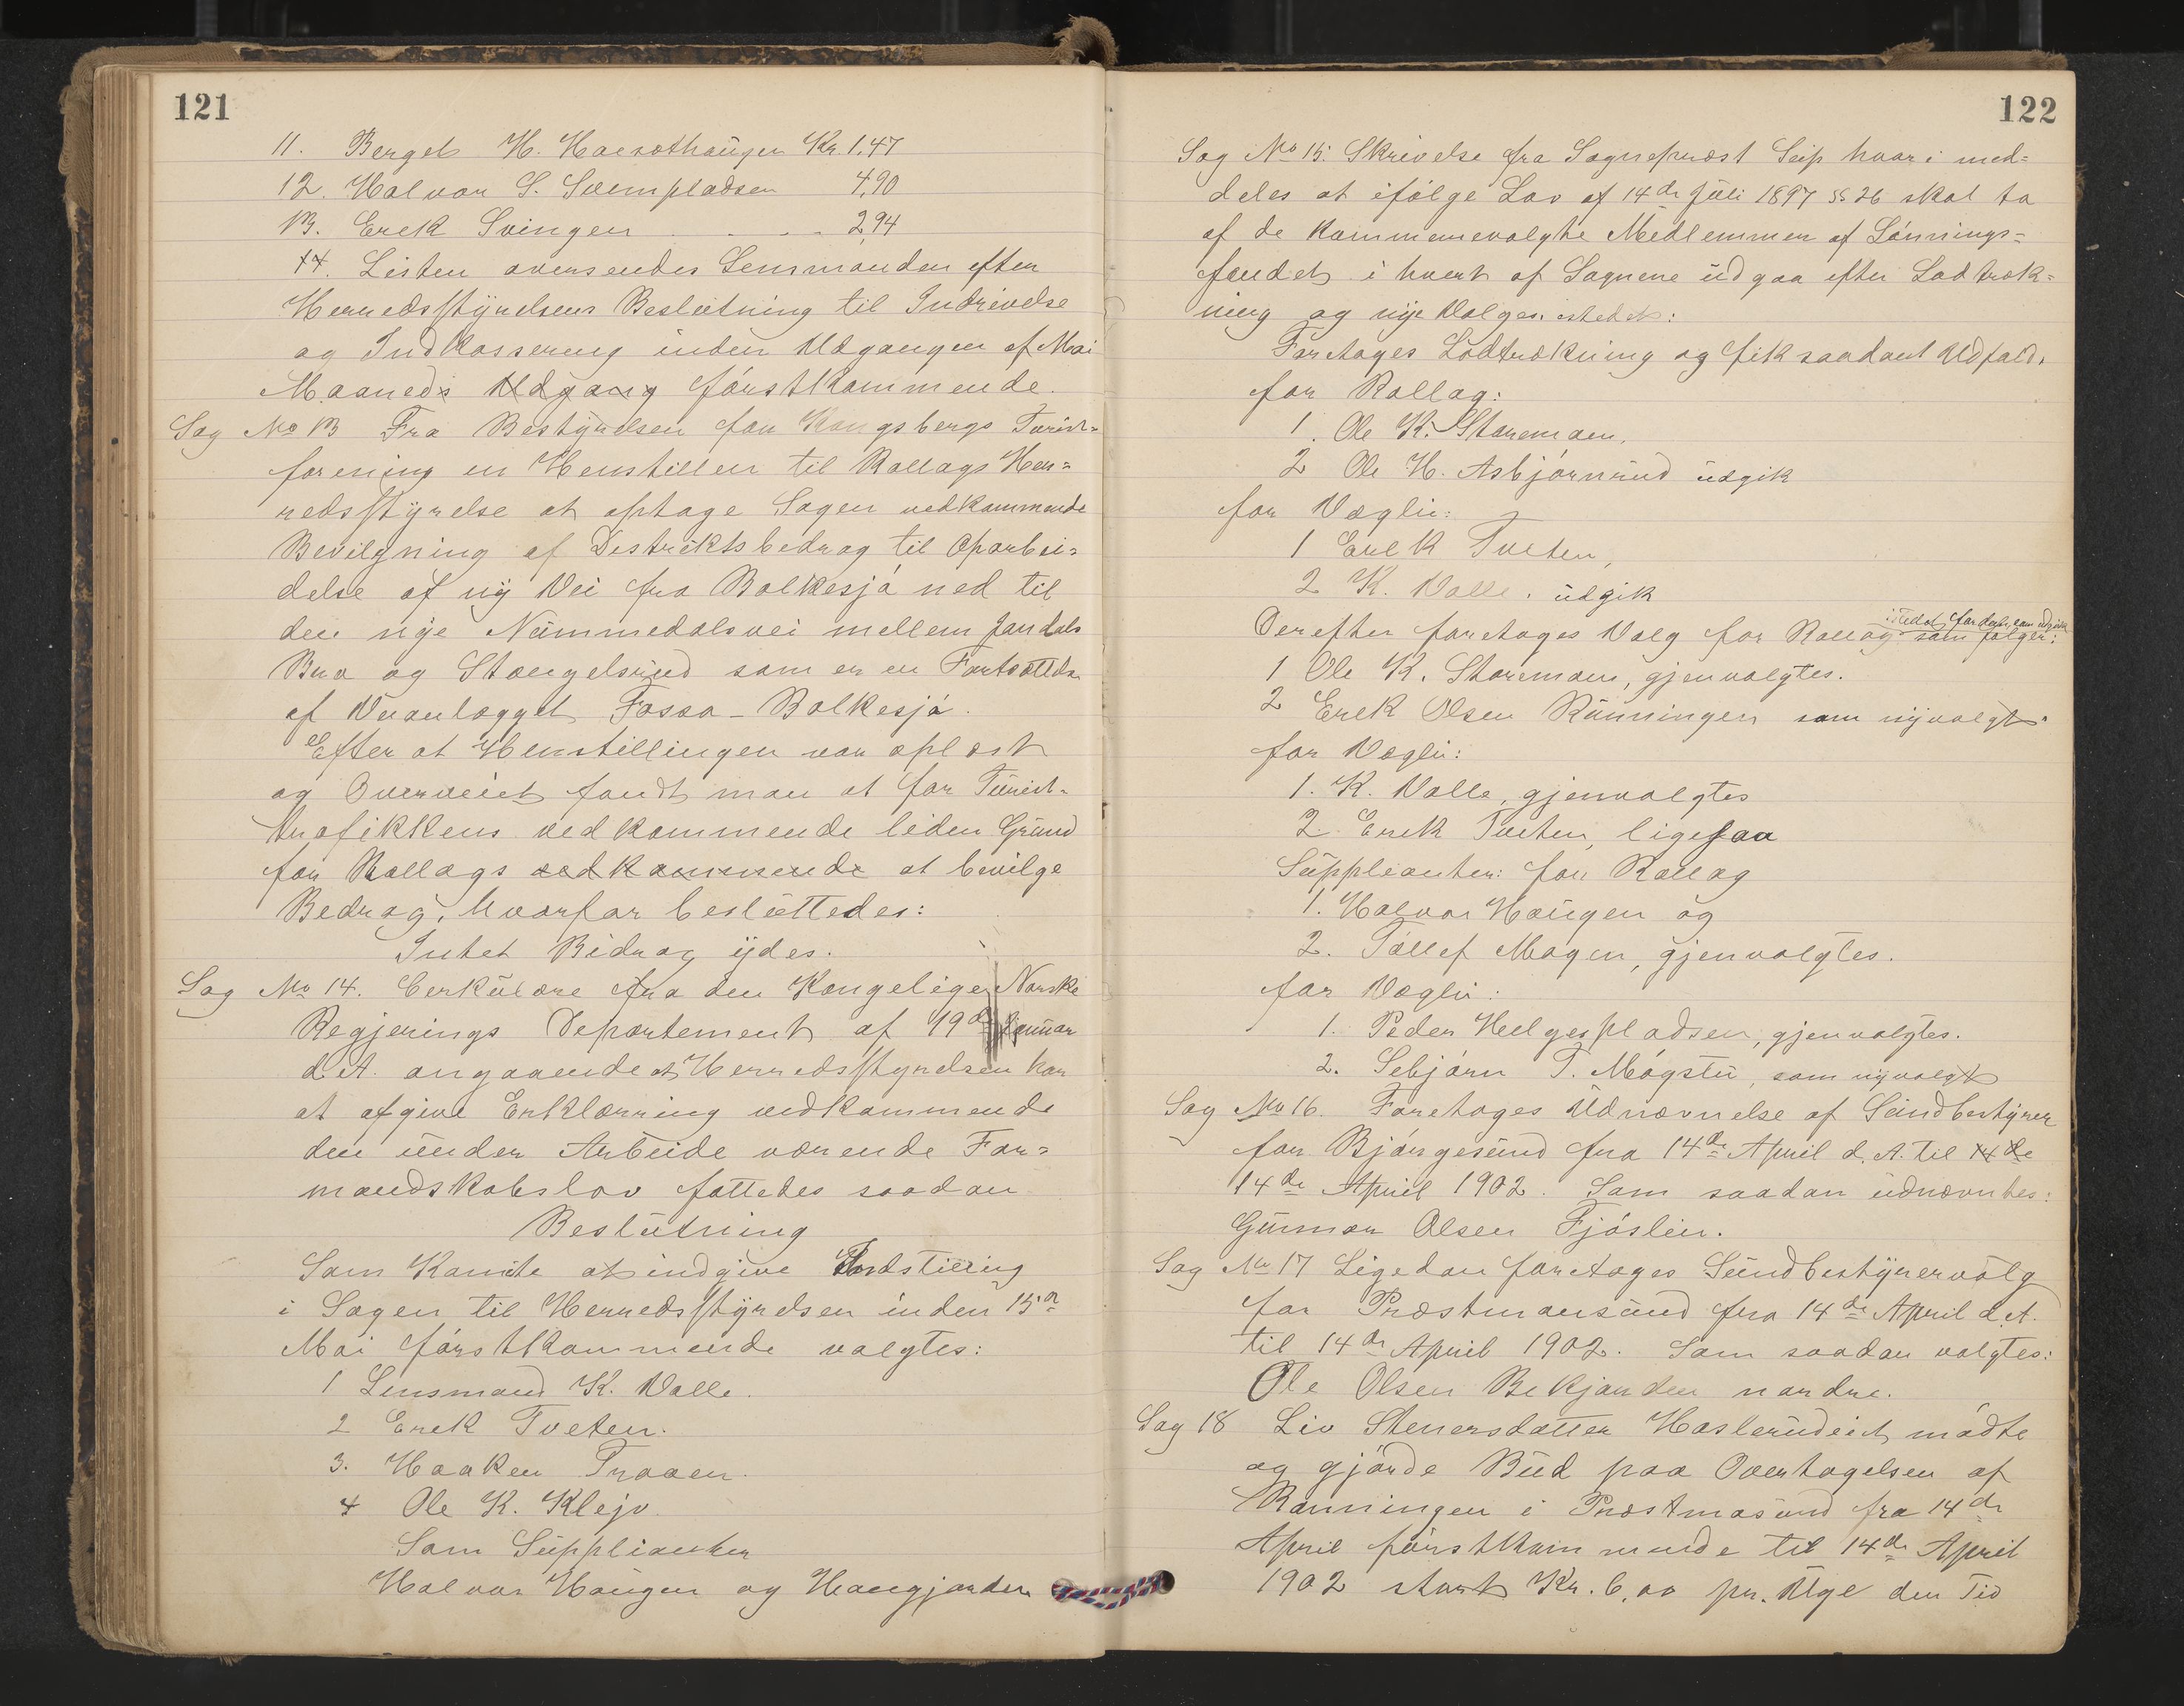 121
11. Bergel H. Haesothaugen Kr. 1,47
12. Halvor S. Svempladsen 4,90
13. Erek Svingen . . . . 2,94
14. Listen oversendes Lensmanden efter
Herredsstyrelsens Beslutning til Indrivelse
og Indkassering inden Udgangen af Mai
Maaneds Udgang førstkommende.
Sag No 13 Fra Bestyrelsen for Kongsbergs Turist=
forening en Henstillen til Rollags Her=
redsstyrelse at optage Sagen vedkommende
Bevilgning af Destriktsbedrag til Oparbei=
delse af ny Vei fra Bolkesjø ned til
den nye Nummedalsvei mellem Jondals
Bro og Stengelsrud som er en Fortsættelse
af Veianlægget Fosso - Bolkesjø.
Efter at Henstillingen var oplæst
og Overveiet fandt man at for Turist=
trafikkens vedkommende liden Grund
for Rollags vedkommende at bevilge
Bedrag, hvorfor besluttedes:
Intet Bidrag ydes.
Sag No 14. Cerkulære fra den Kongelige Norske
Regjerings Departement af 19de Januar
d. A. angaaende at Herredsstyrelsen har
at afgive Erklærring vedkommende
den under Arbeide værende For=
mandskabslov fattedes saadan
Beslutning
Som Komite at indgive Indstilling
i Sagen til Herredsstyrelsen inden 15de
Mai førstkommende valgtes:
1 Lensmand K. Valle.
2 Erek Tveten.
3. Haaken Traaen.
4 Ole K. Klejv
Som Supplianter
Halvor Haugen og Haugjorden
122
Sag No 15. Skrivelse fra Sogneprest Seip hvori med=
deles at ifølge Lov af 14de Juli 1897 §§ 26 skal to
af de Kommunevalgte Medlemmer af Lønnings=
fondet i hvert af Sognene udgaa efter Lodtræk=
ning og nye Valges istedet:
Foretages Lodtrækning og fik saadant Udfald.
for Rollag:
1. Ole K. Storemoen,
2 Ole H. Asbjørnrud udgik
for Veglie:
1 Erek Tveten,
2 K. Valle. udgik
istedet for dem som udgik
Derefter foretages Valg for Rollag som følger:
1 Ole K. Storemoen, gjenvalgtes.
2 Erek Olsen Rønningen som nyvalgt.
for Veglie:
1. K. Valle, gjenvalgtes
2. Erek Tveten, ligesaa
Suppleanter: for Rollag
1. Halvor Haugen og
2. Tollef Mogen, gjenvalgtes.
for Veglie:
1. Peder Helgespladsen, gjenvalgtes.
2. Sebjørn T. Møgstu, som nyvalgt
Sag No 16. Foretages Udnævnelse af Sundbestyrer
for Bjørgesund fra 14de April d. A. til 14de
14de April 1902. Som saadan udnævntes:
Gunnar Olsen Fjøslien.
Sag No 17 Ligedan foretages Sundbestyrervalg
for Prestmoensund fra 14de April d. A.
til 14de April 1902. Som saadan valgtes:
Ole Olsen Bekjorden nordre.
Sag 18 Liv Stenersdatter Haslerudeiet mødte
og gjørde Bud paa Overtagelsen af
Rønningen i Prestmosund fra 14de
April førstkommende til 14de April
1902 stort Kr. 6.00 pr. Uge den Tid